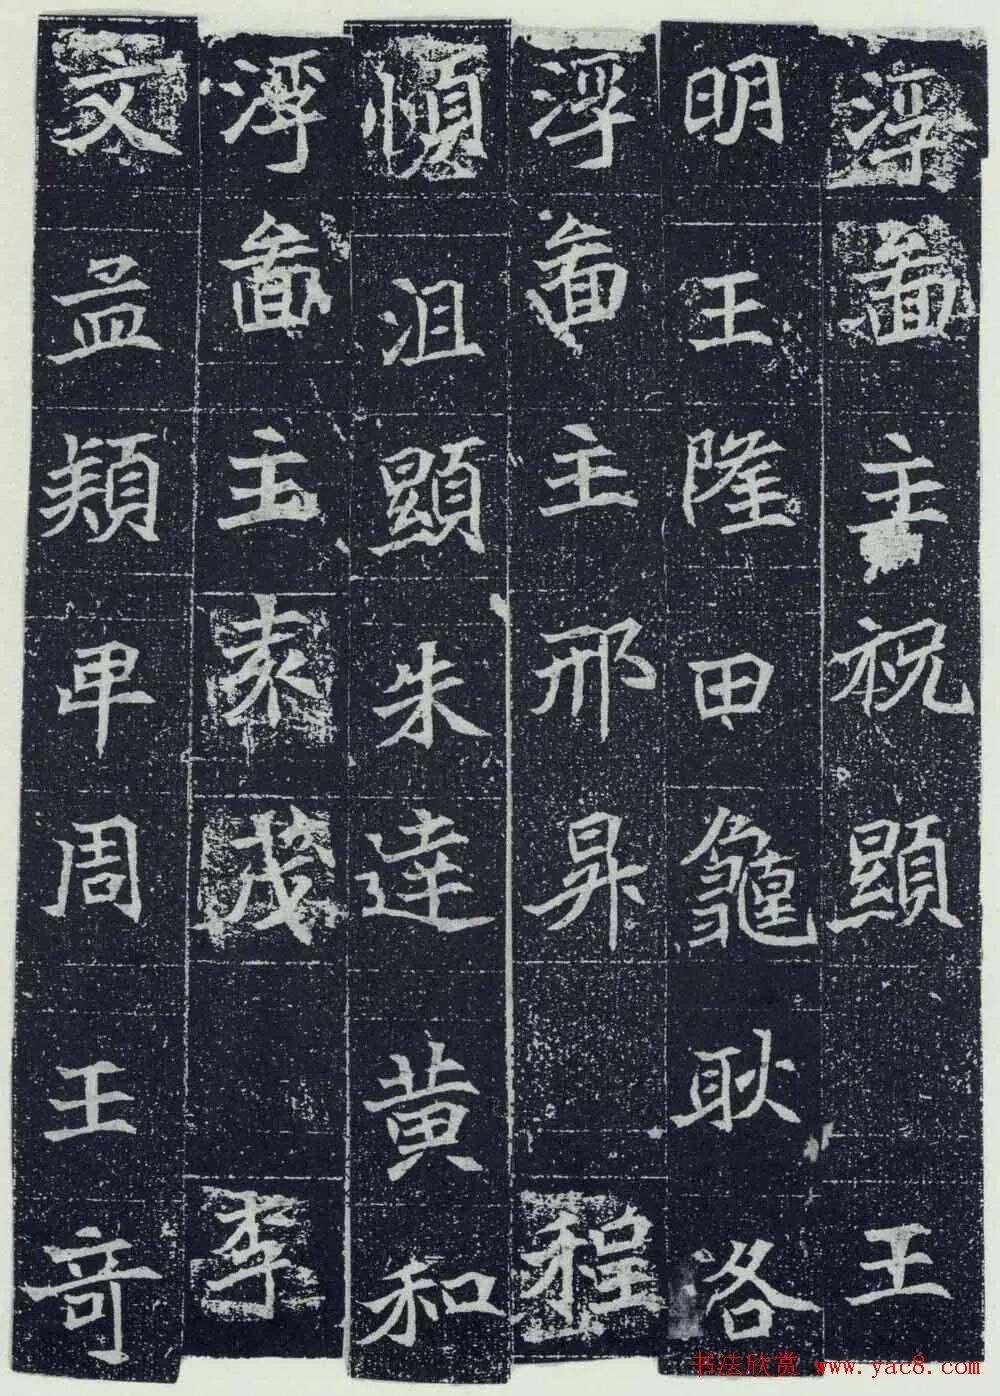 浮啚主祝顯 王
明王隆田龜耿洛
浮啚主邢昇 程
沮顯朱達黄和
浮啚主袁茂 李
文孟周王奇
书法欣赏 www.yac8.com